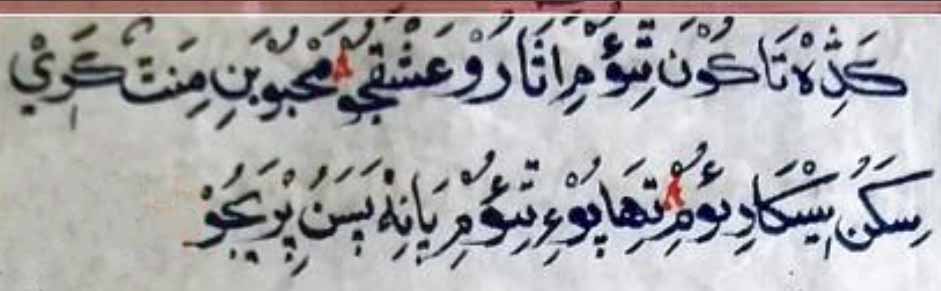 كَڎِهْ تَا كُوْنَ تِئُومِ اثَارَوْ عَشْقَجُوْ مَحْبُوْبَنِ مِنَتَ كَرِيْ
سِكَنُ سِيْكَارِيومِ تِهَا پُوْءِ تِئُومِ يَانِهْ پَسَنُ پِرِيَجُوْ